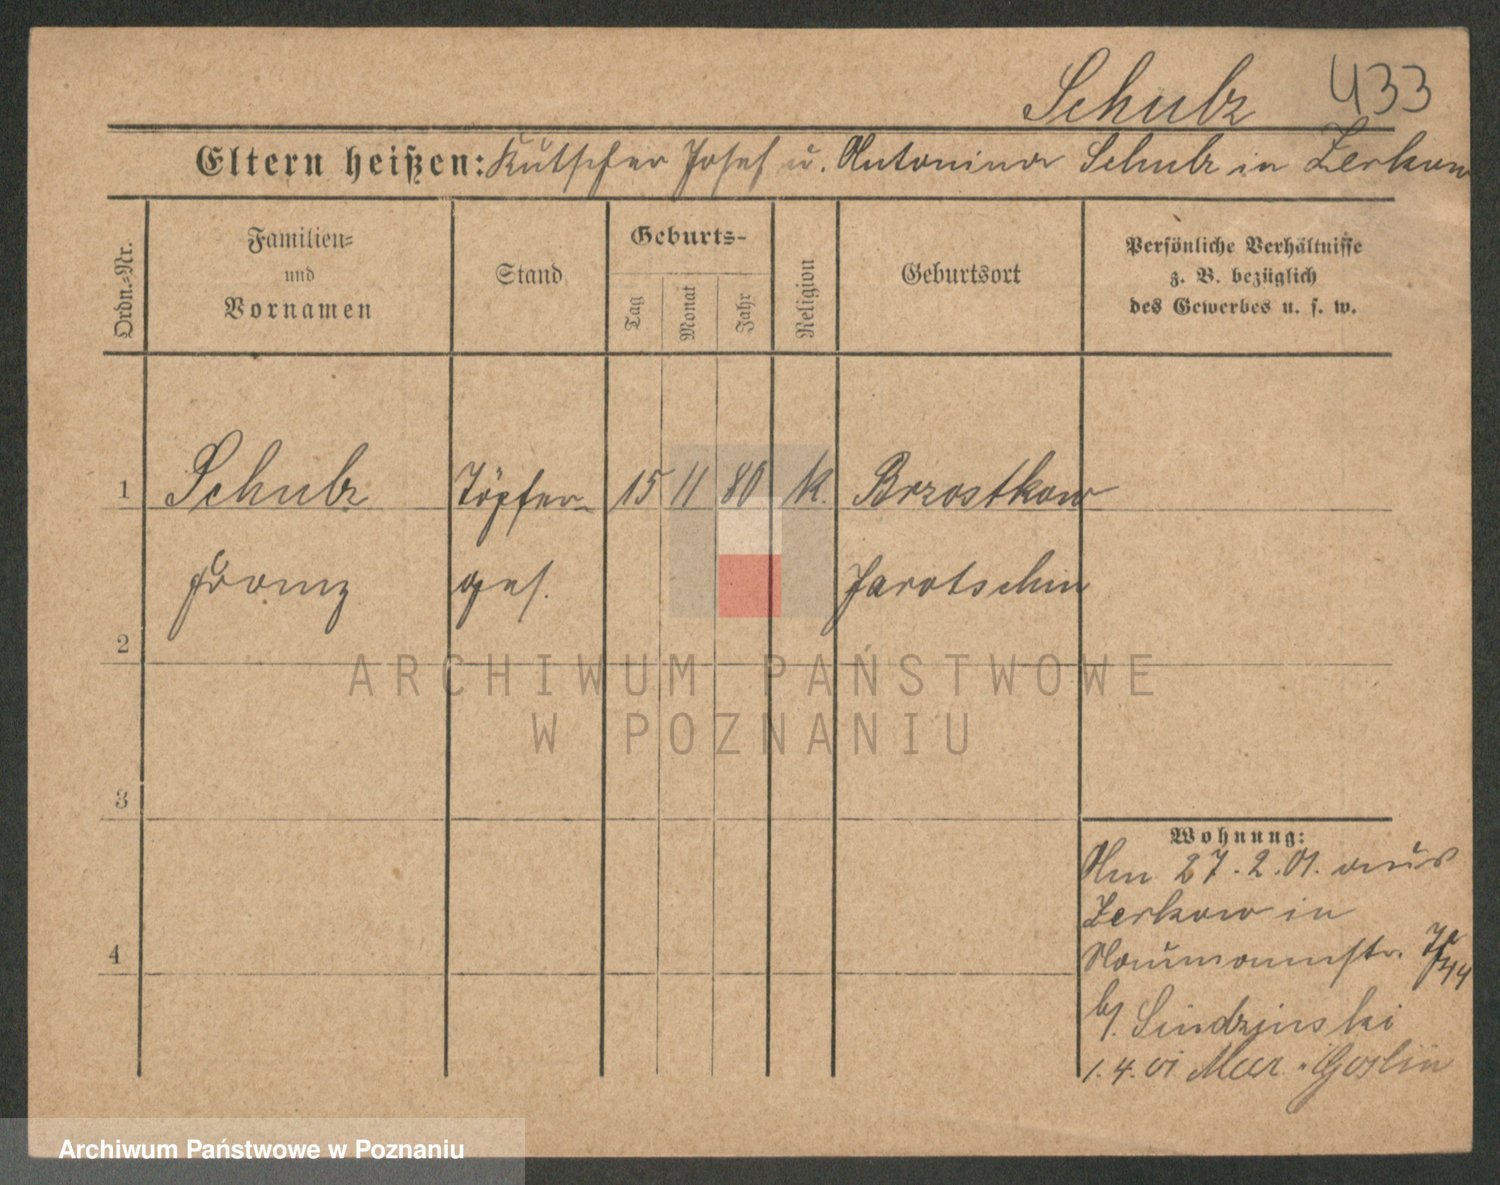 Schulz 433
Eltern heißen: Kutscher Josef u. Antonina Schulz in Zerkow
Ordn.-Nr.
Familien-
und
Vornamen
Stand
Geburts-
Tag
Monat
Jahr
Religion
Geburtsort
Persönliche Verhältnisse
z. B. bezüglich
des Gewerbes u. s. w.
1 Schulz Töpfer- 15 11 80 k. Brzostkow
Franz ges. Jarotschin
2
ARCHIWUM PAŃSTWOWE
W POZNANIU
3
Wohnung:
Am 27.2.01. aus
Zerkow in
Naumannstr.
4
b/.
1.4.01 Mur. Goslin
Archiwum Państwowe w Poznaniu